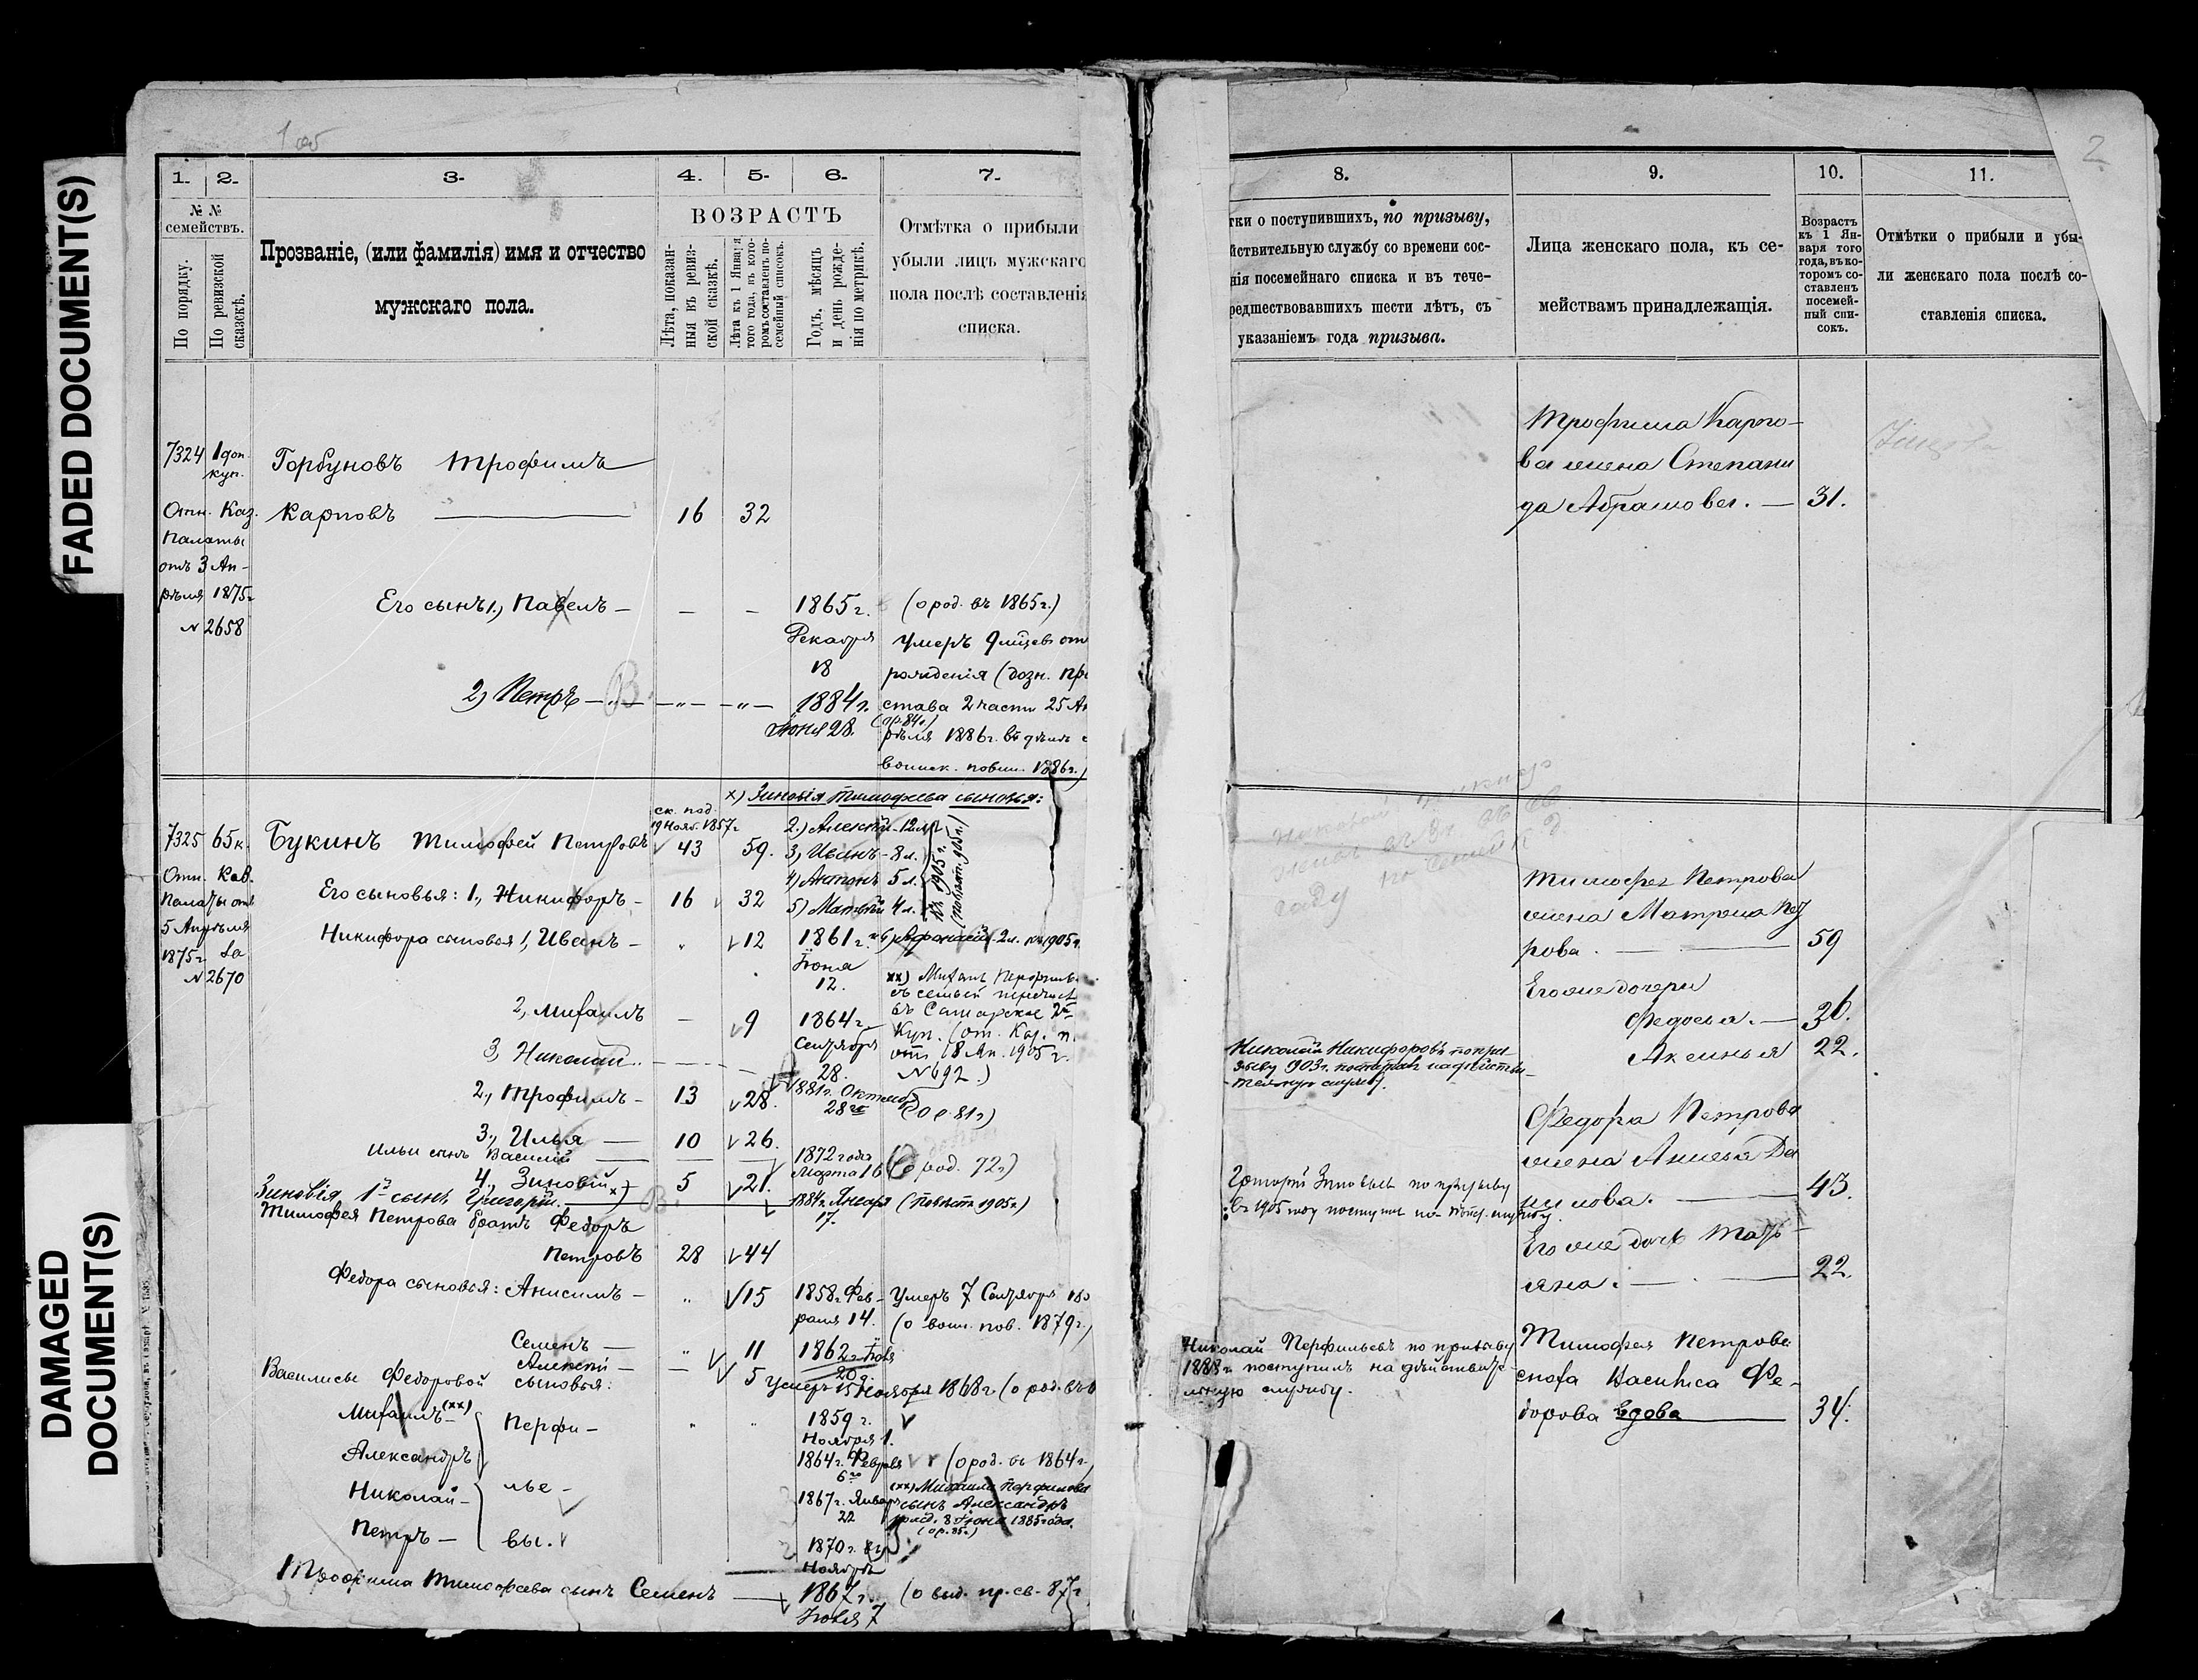 FADED DOCUMENT(S)
DAMAGED
DOCUMENT(S)
1 об
1. 2. 3. 4. 5. 6. 7.
№ №
семействъ.
По порядку.
По ревизской
сказкѣ.
Прозваніе, (или фамилія) имя и отчество
мужскаго пола.
ВОЗРАСТЪ
Лѣта, показан-
ныя въ ревиз-
ской сказкѣ.
Лѣта къ 1 Января
того года, въ кото-
ромъ составленъ по-
семейный списокъ.
Годъ, мѣсяцъ
и день рожде-
нія по метрикѣ.
Отмѣтка о прибыли
убыли лицъ мужскаго
пола послѣ составленія
списка.
7324 1 доп. куп.
Отн. Каз.
Палаты
отъ 3 Ап-
рѣля 1875г
№ 2658
Горбуновъ Трофимъ
Карповъ — 16 32
Его сынъ 1., Павелъ — — — 1865г.
Декабря
18
(о род. въ 1865г.)
умеръ 9 мѣцевъ от
рожденія (дозн. При
става 2 части 25 Ап
рѣля 1886г. въ дѣлѣ о
воинск. повин. 1886г.)
2) Петръ — 1884г.
Іюня 28. (ор. 84г)
x) Зиновія Тимофеева сыновья:
2.) Алексѣй - 12 л.
3) Иванъ - 8 л.
4) Антонъ 5 л.
5) Матвѣй 4 л.
къ 1905г.
6) Афанасій 2 л. къ 1905г.
ск. под.
19 Нояб. 1857г
7325 65 к.
Отн. Каз.
Палаты отъ
5 Апрѣля
1875г за
№ 2670
Букинъ Тимофей Петровъ 43 59.
Его сыновья: 1., Никифоръ — 16 32
Никифора сыновья 1, Иванъ — " 12 1861г.
Іюня
12.
xx) Михаилъ Перфильевъ
съ семьей перечисл
въ Самарское 2е
Куп. (от. Каз. п.
отъ 18 Ап. 1905г.
№ 692.)
2, Михаилъ — 9 1864г.
Сентября
28.
3, Николай — 1881г. Октября
28го (о р. 81г)
2., Трофимъ — 13 28.
3., Илья — 10 26.
Ильи сынъ Василій — 1872 года
Марта 16 (о род. 72г)
4., Зиновій x) 5 21.
Зиновія 1й сынъ Григорій. — 1884г. Января
17. (Повѣст. 1905г.)
Тимофея Петрова братъ Федоръ
Петровъ 28 44
Федора сыновья: Анисимъ — " 15 1858г. Фев-
раля 14.
Умеръ 7 Сентября
(о воин. пов. 1879г.)
Семенъ — " 11 1862г. Іюля
20
Алексѣй — — 5 Умеръ 15 Ноября 1868г. (о род. въ
Василисы Федоровой сыновья:
Михаилъ (xx) Перфи- " " 1859г.
Ноября 1.
Александръ 1864г. Февраля
6го (о род. въ 1864г.)
Николай — лье- 1867г. Января
22
(xx) Михаила Перфильева
сынъ Александръ
рожд. 8 Іюня 1885 года.
(о р. 85г.)
Петръ — вы. 1870г.
Ноября
Трофима Тимофеева сынъ Семенъ — 1867г.
Іюля 7 (о выд. пр. св. 87г
2
8. 9. 10. 11.
тки о поступившихъ, по призыву,
йствительную службу со времени сос-
нія посемейнаго списка и въ тече-
редшествовавшихъ шести лѣтъ, съ
указаніемъ года призыва.
Лица женскаго пола, къ се-
мействамъ принадлежащія.
Возрастъ
къ 1 Ян-
варя того
года, въ ко-
торомъ со-
ставленъ
посемей-
ный спи-
сокъ.
Отмѣтки о прибыли и убы-
ли женскаго пола послѣ со-
ставленія списка.
Трофима Карпо-
ва жена Степани
да Абрамова. — 31.
Тимофея Петрова
жена Матрона Пет
рова. — 59
Его же дочери
Федосья. — 36.
Аксинья 22.
Николай Никифоровъ по при-
зыву 903г. поступилъ на дѣйстви-
тельную службу.
Федора Петрова
жена Анисья Да
нилова. — 43.
Григорій Зиновьевъ по призыву
въ 1905 году поступилъ на дѣйст. службу.
Его же дочь Мать-
яна. — 22.
Николай Перфильевъ по призыву
1888г. поступилъ на дѣйствите-
льную службу.
Тимофея Петрова
сноха Василиса Фе-
дорова вдова 34.